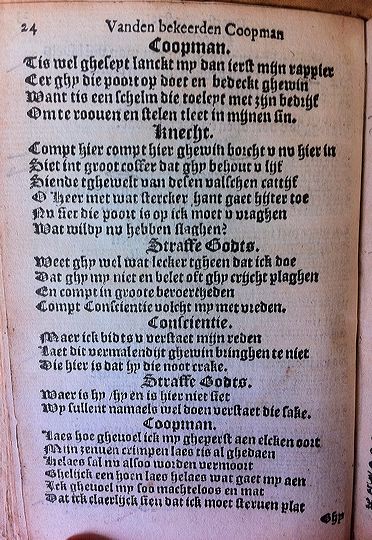 24 Vanden bekeerden Coopman
Coopman.
Tis wel gheseyt lanckt my dan ierst mijn rappier
Eer ghy die poort op doet en bedeckt ghewin
Want tis een schelm die toeleyt met zijn bedrijf
Om te roouen en stelen tleet in mijnen sin.
Knecht.
Compt hier compt hier ghewin borcht v nv hier in
Siet int groot coffer dat ghy behout v lijf
Siende tghewelt van desen valschen cattijf
O Heer met wat stercker hant gaet hijter toe
Nv siet die poort is op ick moet v vraghen
Wat wildy nv hebben slaghen?
Straffe Godts.
Weet ghy wel wat lecker tgheen dat ick doe
Dat ghy my niet en belet oft ghy crijcht plaghen
En compt in groote beroertheden
Compt Conscientie volcht my met vreden.
Conscientie.
Maer ick bidts v verstaet mijn reden
Laet dit vermalendijt ghewin bringhen te niet
Die hier is dat hy die noot crake.
Straffe Godts.
Waer is hy /hy en is hier niet siet
Wy sullent namaels wel doen verstaet die sake.
Coopman.
Laes hoe gheuoel ick my gheperst aen elcken oort
Mijn zenuen crimpen laes tis al ghedaen
Helaes sal nv alsoo worden vermoort
Ghelijck een hoen laes helaes wat gaet my aen
Ick gheuoel my soo machteloos en mat
Dat ick claerlijck sien dat ick moet steruen plat
Ghy